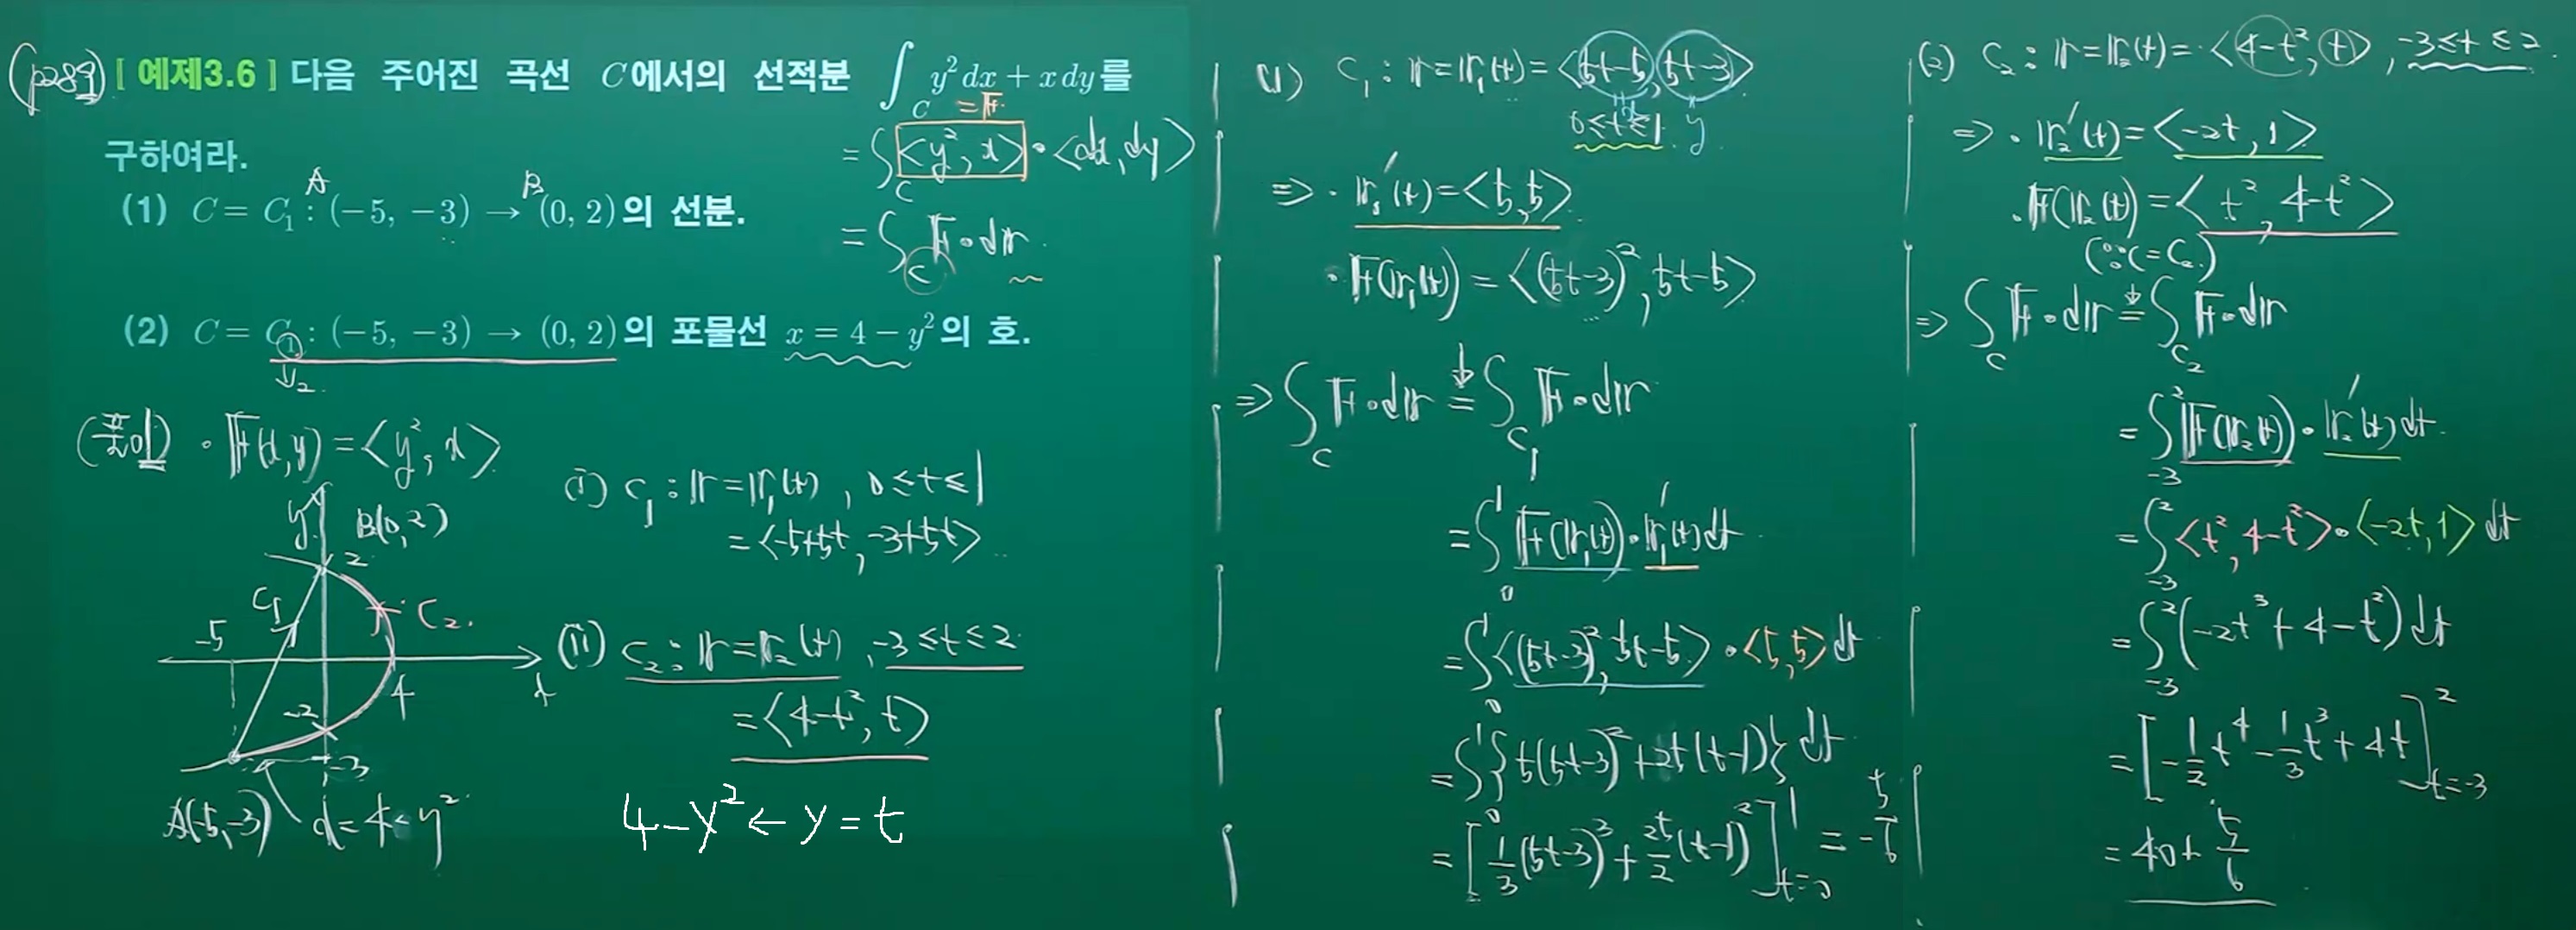 (p289) [ 예제3.6 ] 다음 주어진 곡선 C에서의 선적분 ∫_C y² dx + x dy를
구하여라.
= 𝔽
= ∫_C <y², x> • <dx, dy>
= ∫_C 𝔽 • d𝕣
A B
(1) C = C₁ : (−5, −3) → (0, 2)의 선분.
(2) C = C₁ : (−5, −3) → (0, 2)의 포물선 x = 4 − y²의 호.
↓₂
(풀이) • 𝔽(x,y) = <y², x>
y
B(0,2)
2
C₁
C₂
-5
4
x
-2
-3
A(-5,-3)
x = 4-y²
(i) C₁ : 𝕣 = 𝕣₁(t) , 0≤t≤1
= <-5+5t, -3+5t>
(ii) C₂ : 𝕣 = 𝕣₂(t) , -3≤t≤2
= <4-t², t>
4-y² ← y = t
(1) C₁ : 𝕣 = 𝕣₁(t) = <5t-5, 5t-3>
x
0≤t≤1 y
⇒ • 𝕣₁′(t) = <5, 5>
• 𝔽(𝕣₁(t)) = <(5t-3)², 5t-5>
⇒ ∫_C 𝔽 • d𝕣 = ∫_C₁ 𝔽 • d𝕣
= ∫₀¹ 𝔽(𝕣₁(t)) • 𝕣₁′(t) dt
= ∫₀¹ <(5t-3)², 5t-5> • <5, 5> dt
= ∫₀¹ {5(5t-3)² + 25(t-1)} dt
= [ 1/3 (5t-3)³ + 25/2 (t-1)² ]¹_t=0 = - 5/6
(2) C₂ : 𝕣 = 𝕣₂(t) = <4-t², t> , -3≤t≤2
⇒ • 𝕣₂′(t) = <-2t, 1>
• 𝔽(𝕣₂(t)) = <t², 4-t²>
(∵ C = C₂)
⇒ ∫_C 𝔽 • d𝕣 = ∫_C₂ 𝔽 • d𝕣
= ∫₋₃² 𝔽(𝕣₂(t)) • 𝕣₂′(t) dt
= ∫₋₃² <t², 4-t²> • <-2t, 1> dt
= ∫₋₃² (-2t³ + 4 - t²) dt
= [ -1/2 t⁴ - 1/3 t³ + 4t ]²_t=-3
= 40 + 5/6